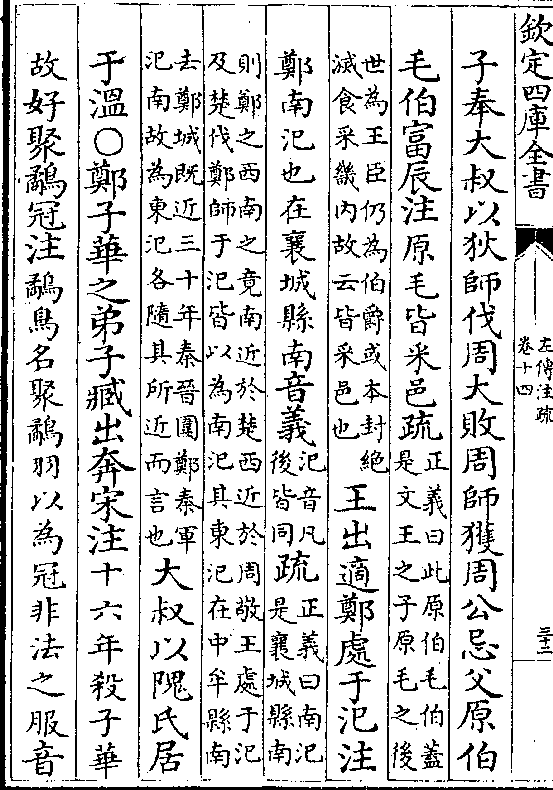 欽定四庫全書
左傳注疏
卷十四
子奉大叔以狄師伐周大敗周師獲周公忌父原伯
毛伯富辰注原毛皆采邑疏
正義曰此原伯毛伯蓋
是文王之子原毛之後
世為王臣仍為伯爵或本封絶
滅食采畿内故云皆采邑也
王出適鄭處于氾注
鄭南氾也在襄城縣南音義
氾音凡
後皆同
疏
正義曰南氾
是襄城縣南
則鄭之西南之竟南近於楚西近於周敬王處于氾
及楚伐鄭師于氾皆以為南氾其東氾在中牟縣南
去鄭城既近三十年秦晉圍鄭秦軍
氾南故為東氾各隨其所近而言也
大叔以隗氏居
于溫○鄭子華之弟子臧出奔宋注十六年殺子華
故好聚鷸冠注鷸鳥名聚鷸羽以為冠非法之服音